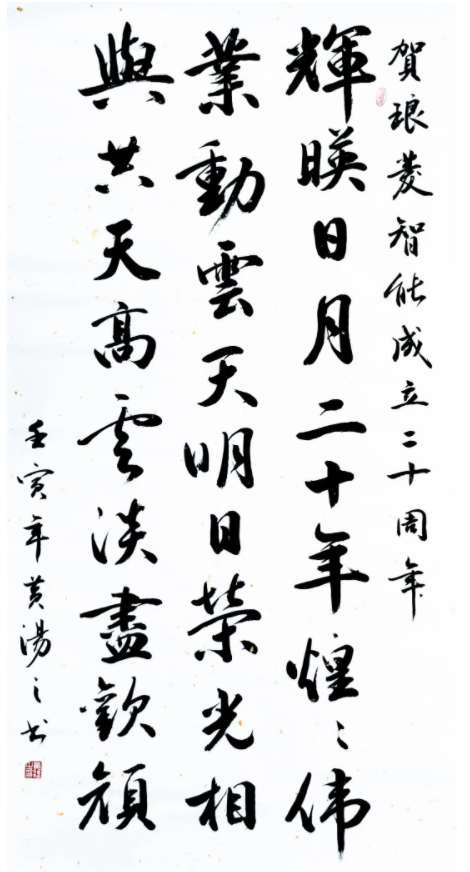 賀琅菱智能成立二十周年
輝暎日月二十年煌〻伟
業動雲天明日荣光相
與共天高云淡盡歡顔
壬寅年黄湯之书